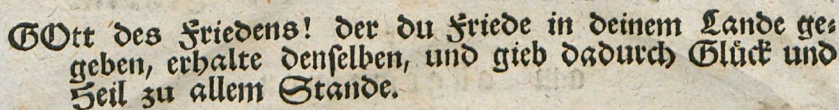 GOtt des Friedens! der du Friede in deinem Lande ge-
geben, erhalte denselben, und gieb dadurch Glück und
Heil zu allem Stande.